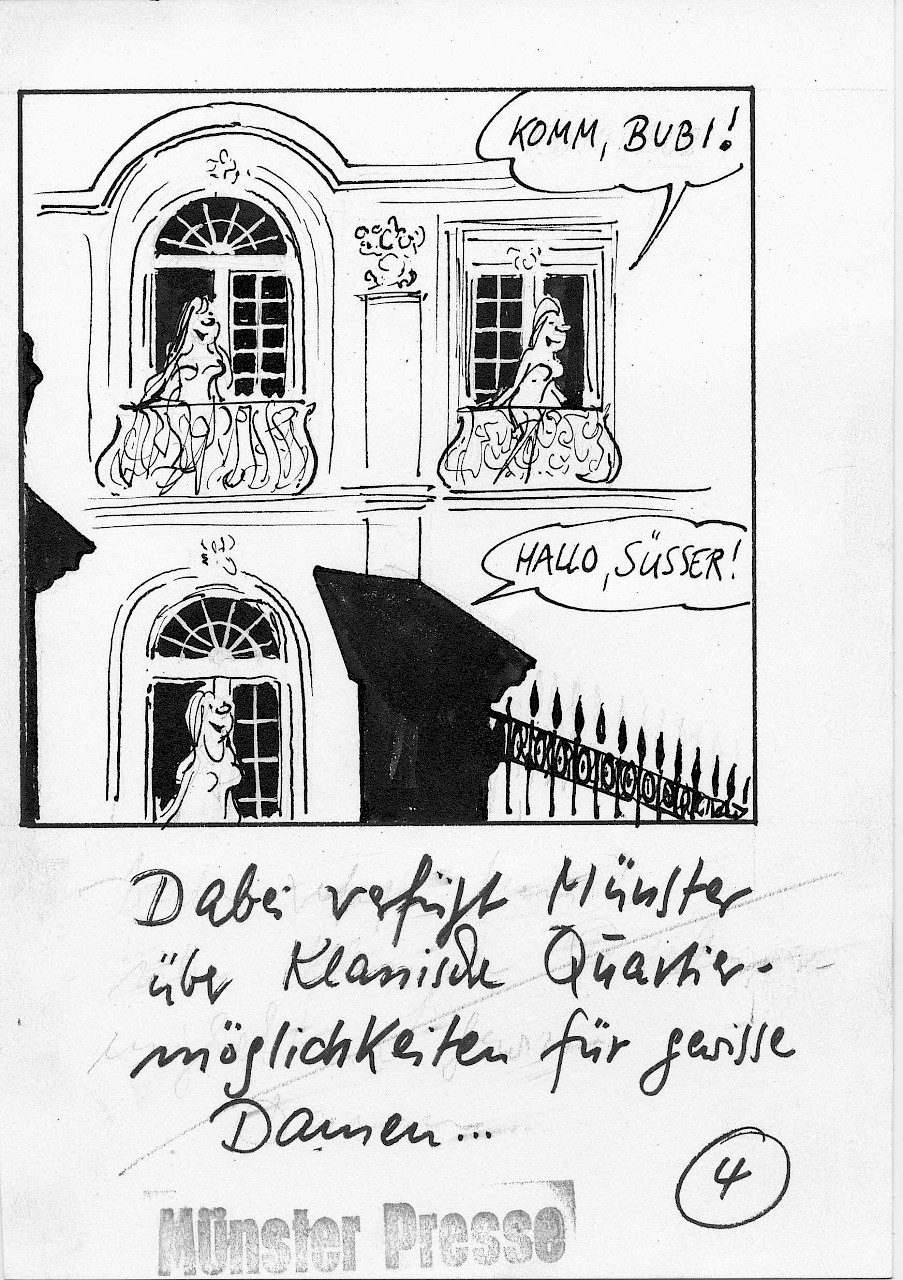 KOMM, BUBI!
HALLO, SÜSSER!
Dabei verfügt Münster
über Klassische Quartier-
möglichkeiten für gewisse
Damen...
4
Münster Presse